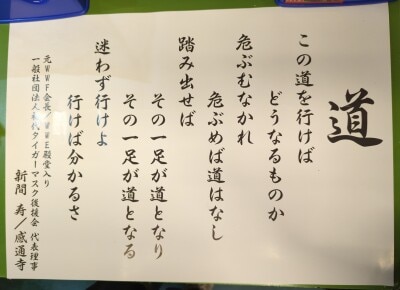 道
この道を行けば
どうなるものか
危ぶむなかれ
危ぶめば道はなし
踏み出せば
その一足が道となり
その一足が道となる
迷わず行けよ
行けば分かるさ
元WWF会長/WWE殿堂入り
一般社団法人初代タイガーマスク後援会 代表理事
新間 寿/感通寺